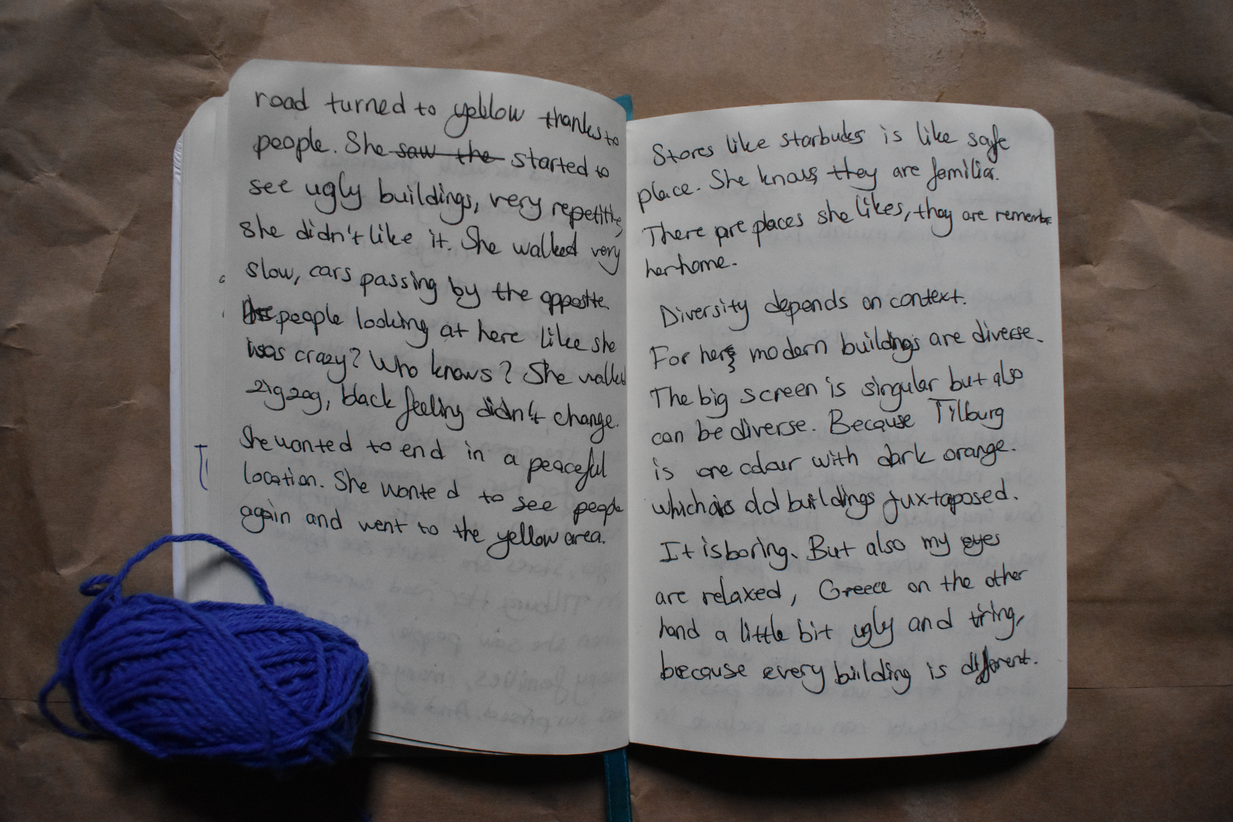 road turned to yellow thanks to
people. She saw the started to
see ugly buildings, very repetitive,
she didn't like it. She walked very
slow, cars passing by the opposite.
people looking at here like she
was crazy? Who knows? She walked
zigzag, black feeling didn't change.
She wanted to end in a peaceful
location. She wanted to see people
again and went to the yellow area.
Stores like starbucks is like safe
place. She knows they are familiar.
There are places she likes, they are remember
her home.
Diversity depends on context.
For her modern buildings are diverse.
The big screen is singular but also
can be diverse. Because Tilburg
is one colour with dark orange.
which is old buildings juxtaposed.
It is boring. But also my eyes
are relaxed, Greece on the other
hand a little bit ugly and tiring,
because every building is different.